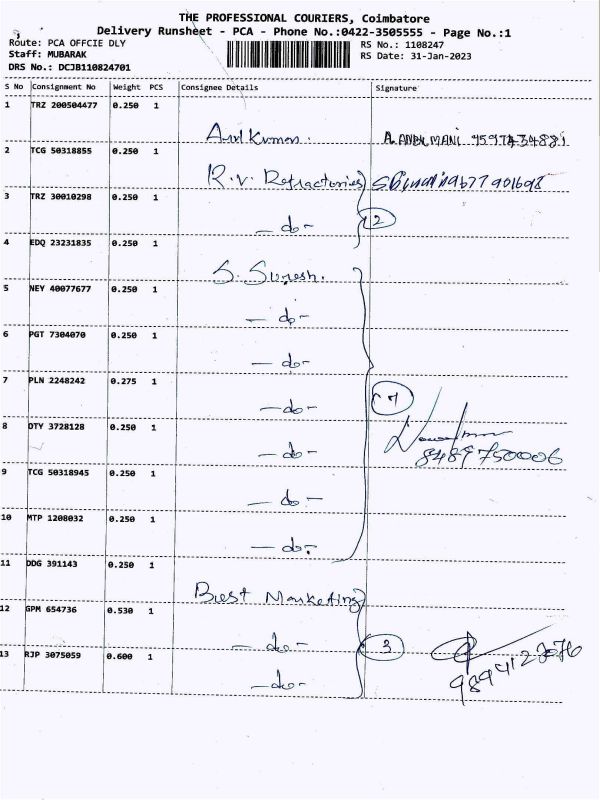 THE PROFESSIONAL COURIERS, Coimbatore
Delivery Runsheet - PCA - Phone No.:0422-3505555 - Page No.:1
Route: PCA OFFCIE DLY
RS No.: 1108247
Staff: MUBARAK
RS Date: 31-Jan-2023
DRS No.: DCJB110824701
S No Consignment No Weight PCS Consignee Details Signature
1 TRZ 200504477 0.250 1
Arul Kumar. A. ANBUMANI 9597434881
2 TCG 50318855 0.250 1
R.V. Refractories 9677901698
3 TRZ 30010298 0.250 1
- do - 2
4 EDQ 23231835 0.250 1
S. Suresh.
5 NEY 40077677 0.250 1
- do -
6 PGT 7304070 0.250 1
- do -
7 PLN 2248242 0.275 1
- do - 7
8 OTY 3728128 0.250 1
- do - 8489750006
9 TCG 50318945 0.250 1
- do -
10 MTP 1208032 0.250 1
- do -
11 DDG 391143 0.250 1
Best Marketing
12 GPM 654736 0.530 1
- do - 3
13 RJP 3075059 0.600 1
- do -